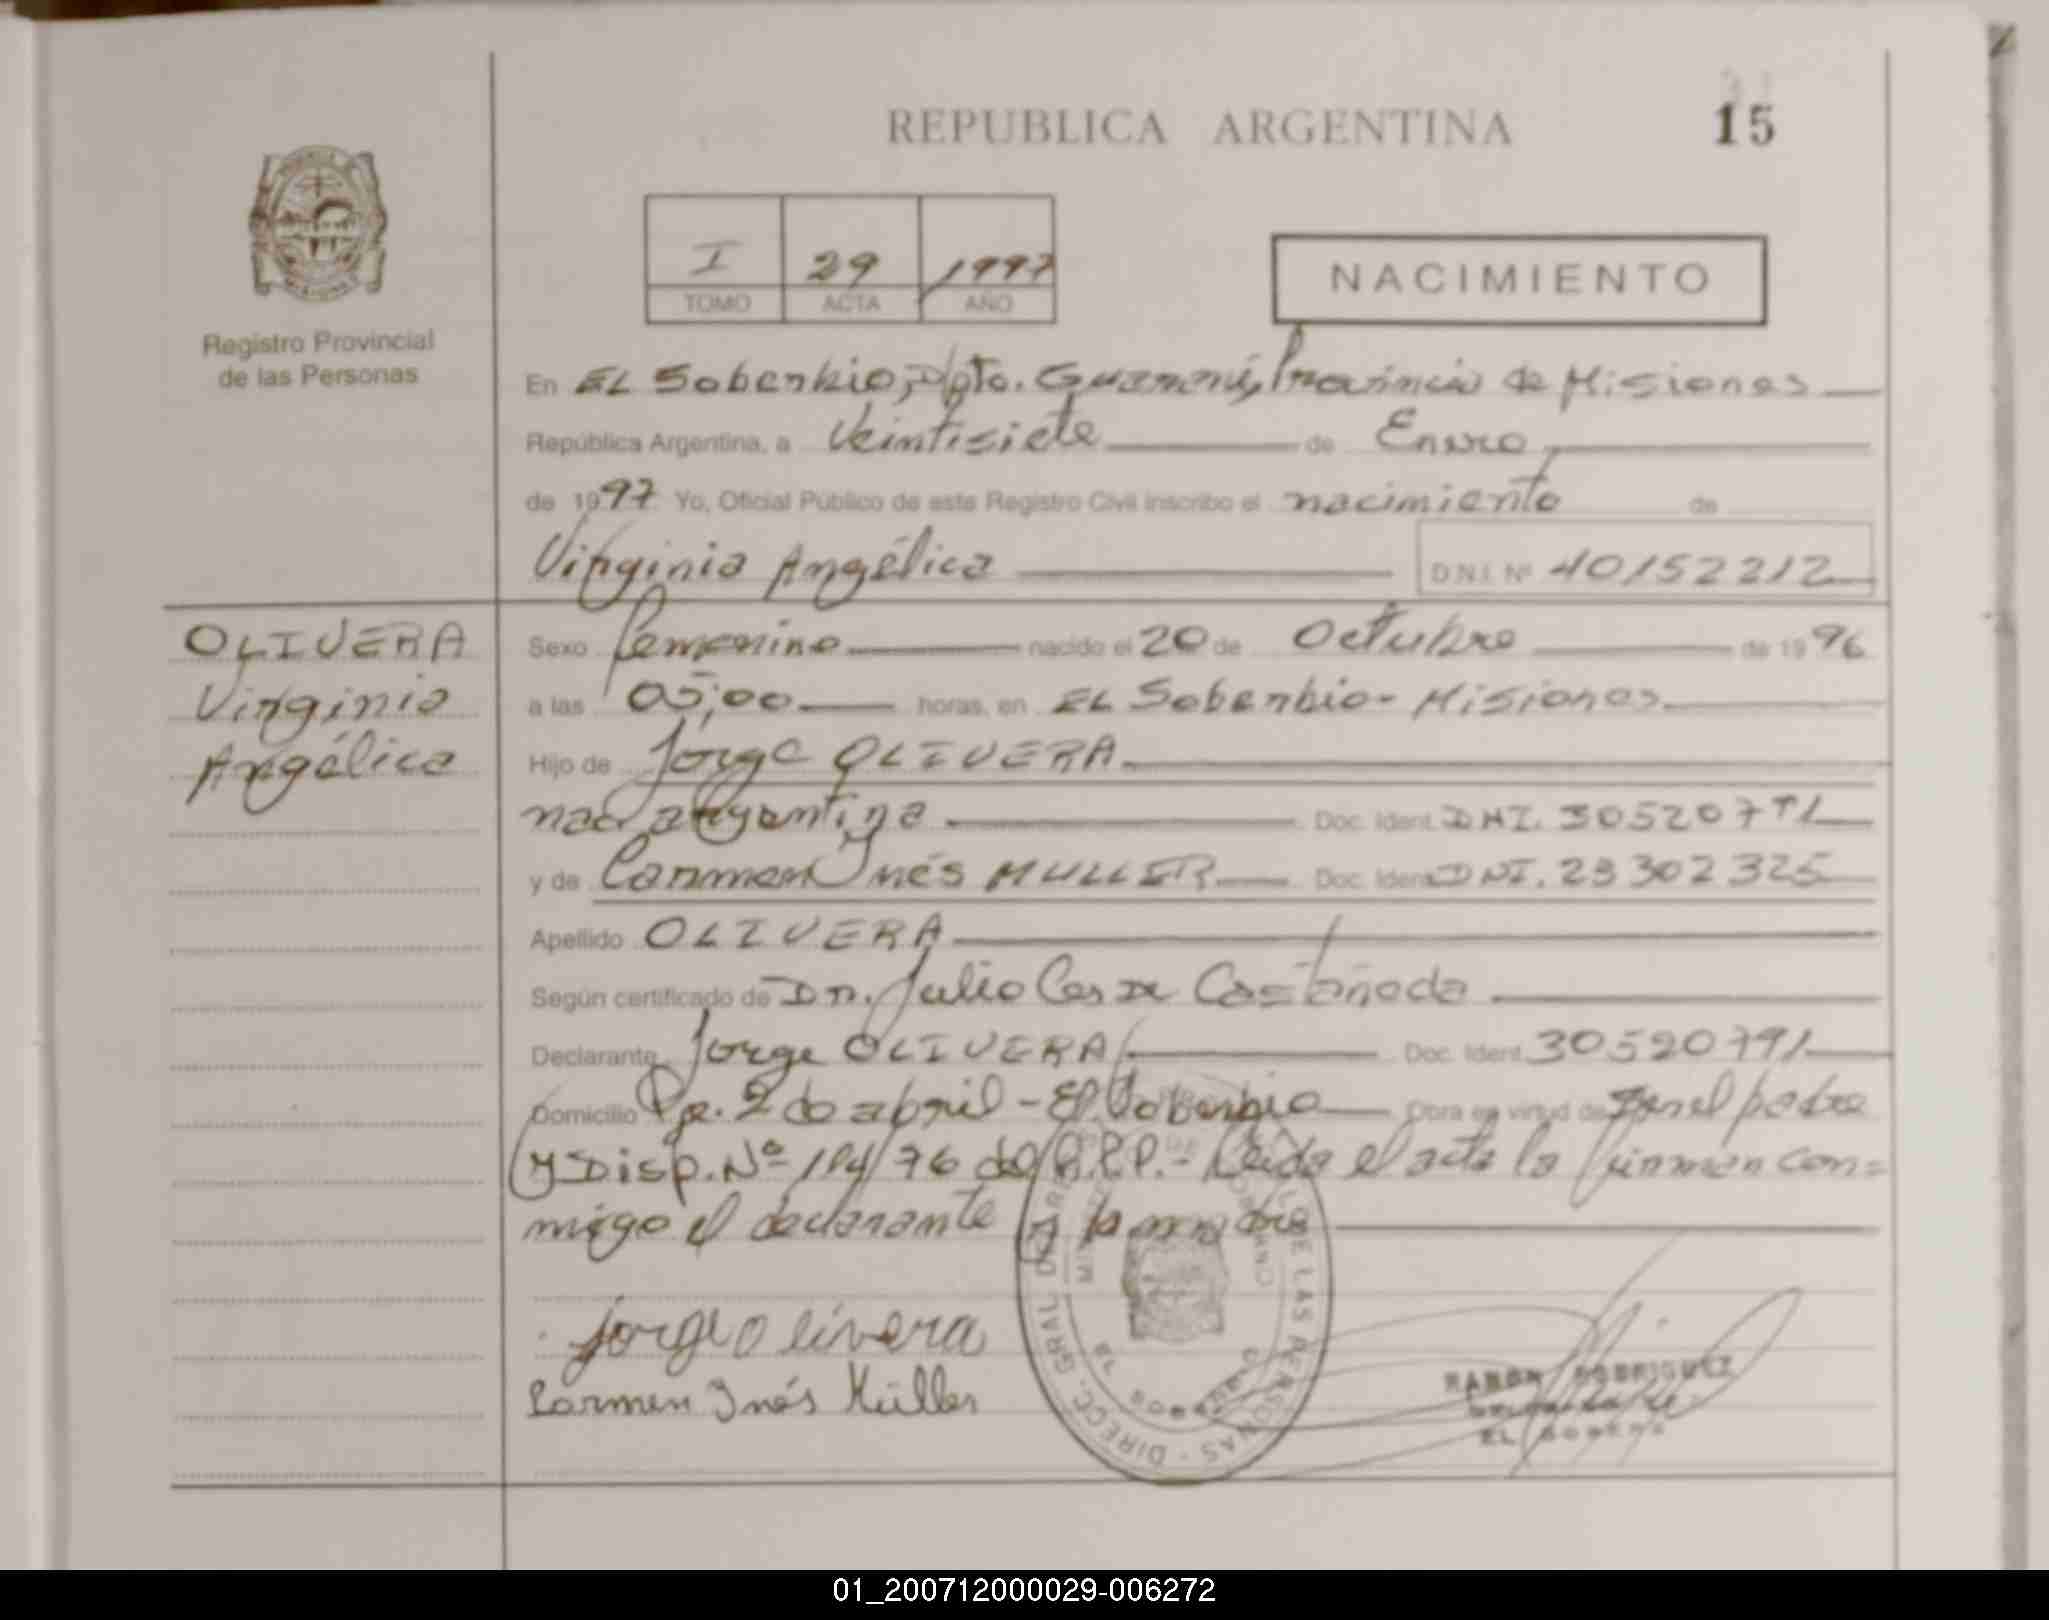 REPUBLICA ARGENTINA
15
Registro Provincial
de las Personas
I 29 1997
TOMO ACTA AÑO
NACIMIENTO
En EL Soberbio, Dpto. Guaraní, Provincia de Misiones
República Argentina, a Veintisiete de Enero
de 1997 Yo, Oficial Público de este Registro Civil inscribo el nacimiento de
Virginia Angélica D.N.I. Nº 40152212
OLIVERA
Virginia
Angélica
Sexo femenino nacido el 20 de Octubre de 1996
a las 05,00 horas, en EL Soberbio - Misiones
Hijo de Jorge OLIVERA
nac argentina Doc. Ident. DNI. 30520791
y de Carmen Inés MULLER Doc. Ident. DNI. 23302325
Apellido OLIVERA
Según certificado de Dn. Julio Cesar Castañeda
Declarante Jorge OLIVERA Doc. Ident. 30520791
Domicilio 2 de abril - El Soberbio Obra en virtud de ser el padre
y Disp. Nº 194/76 del R.P.P. - Leída el acta la firman con=
migo el declarante y la madre
Jorge Olivera
Carmen Inés Müller
DIRECC. GRAL. DE LAS PERSONAS
RAMON RODRIGUEZ
EL
01_200712000029-006272